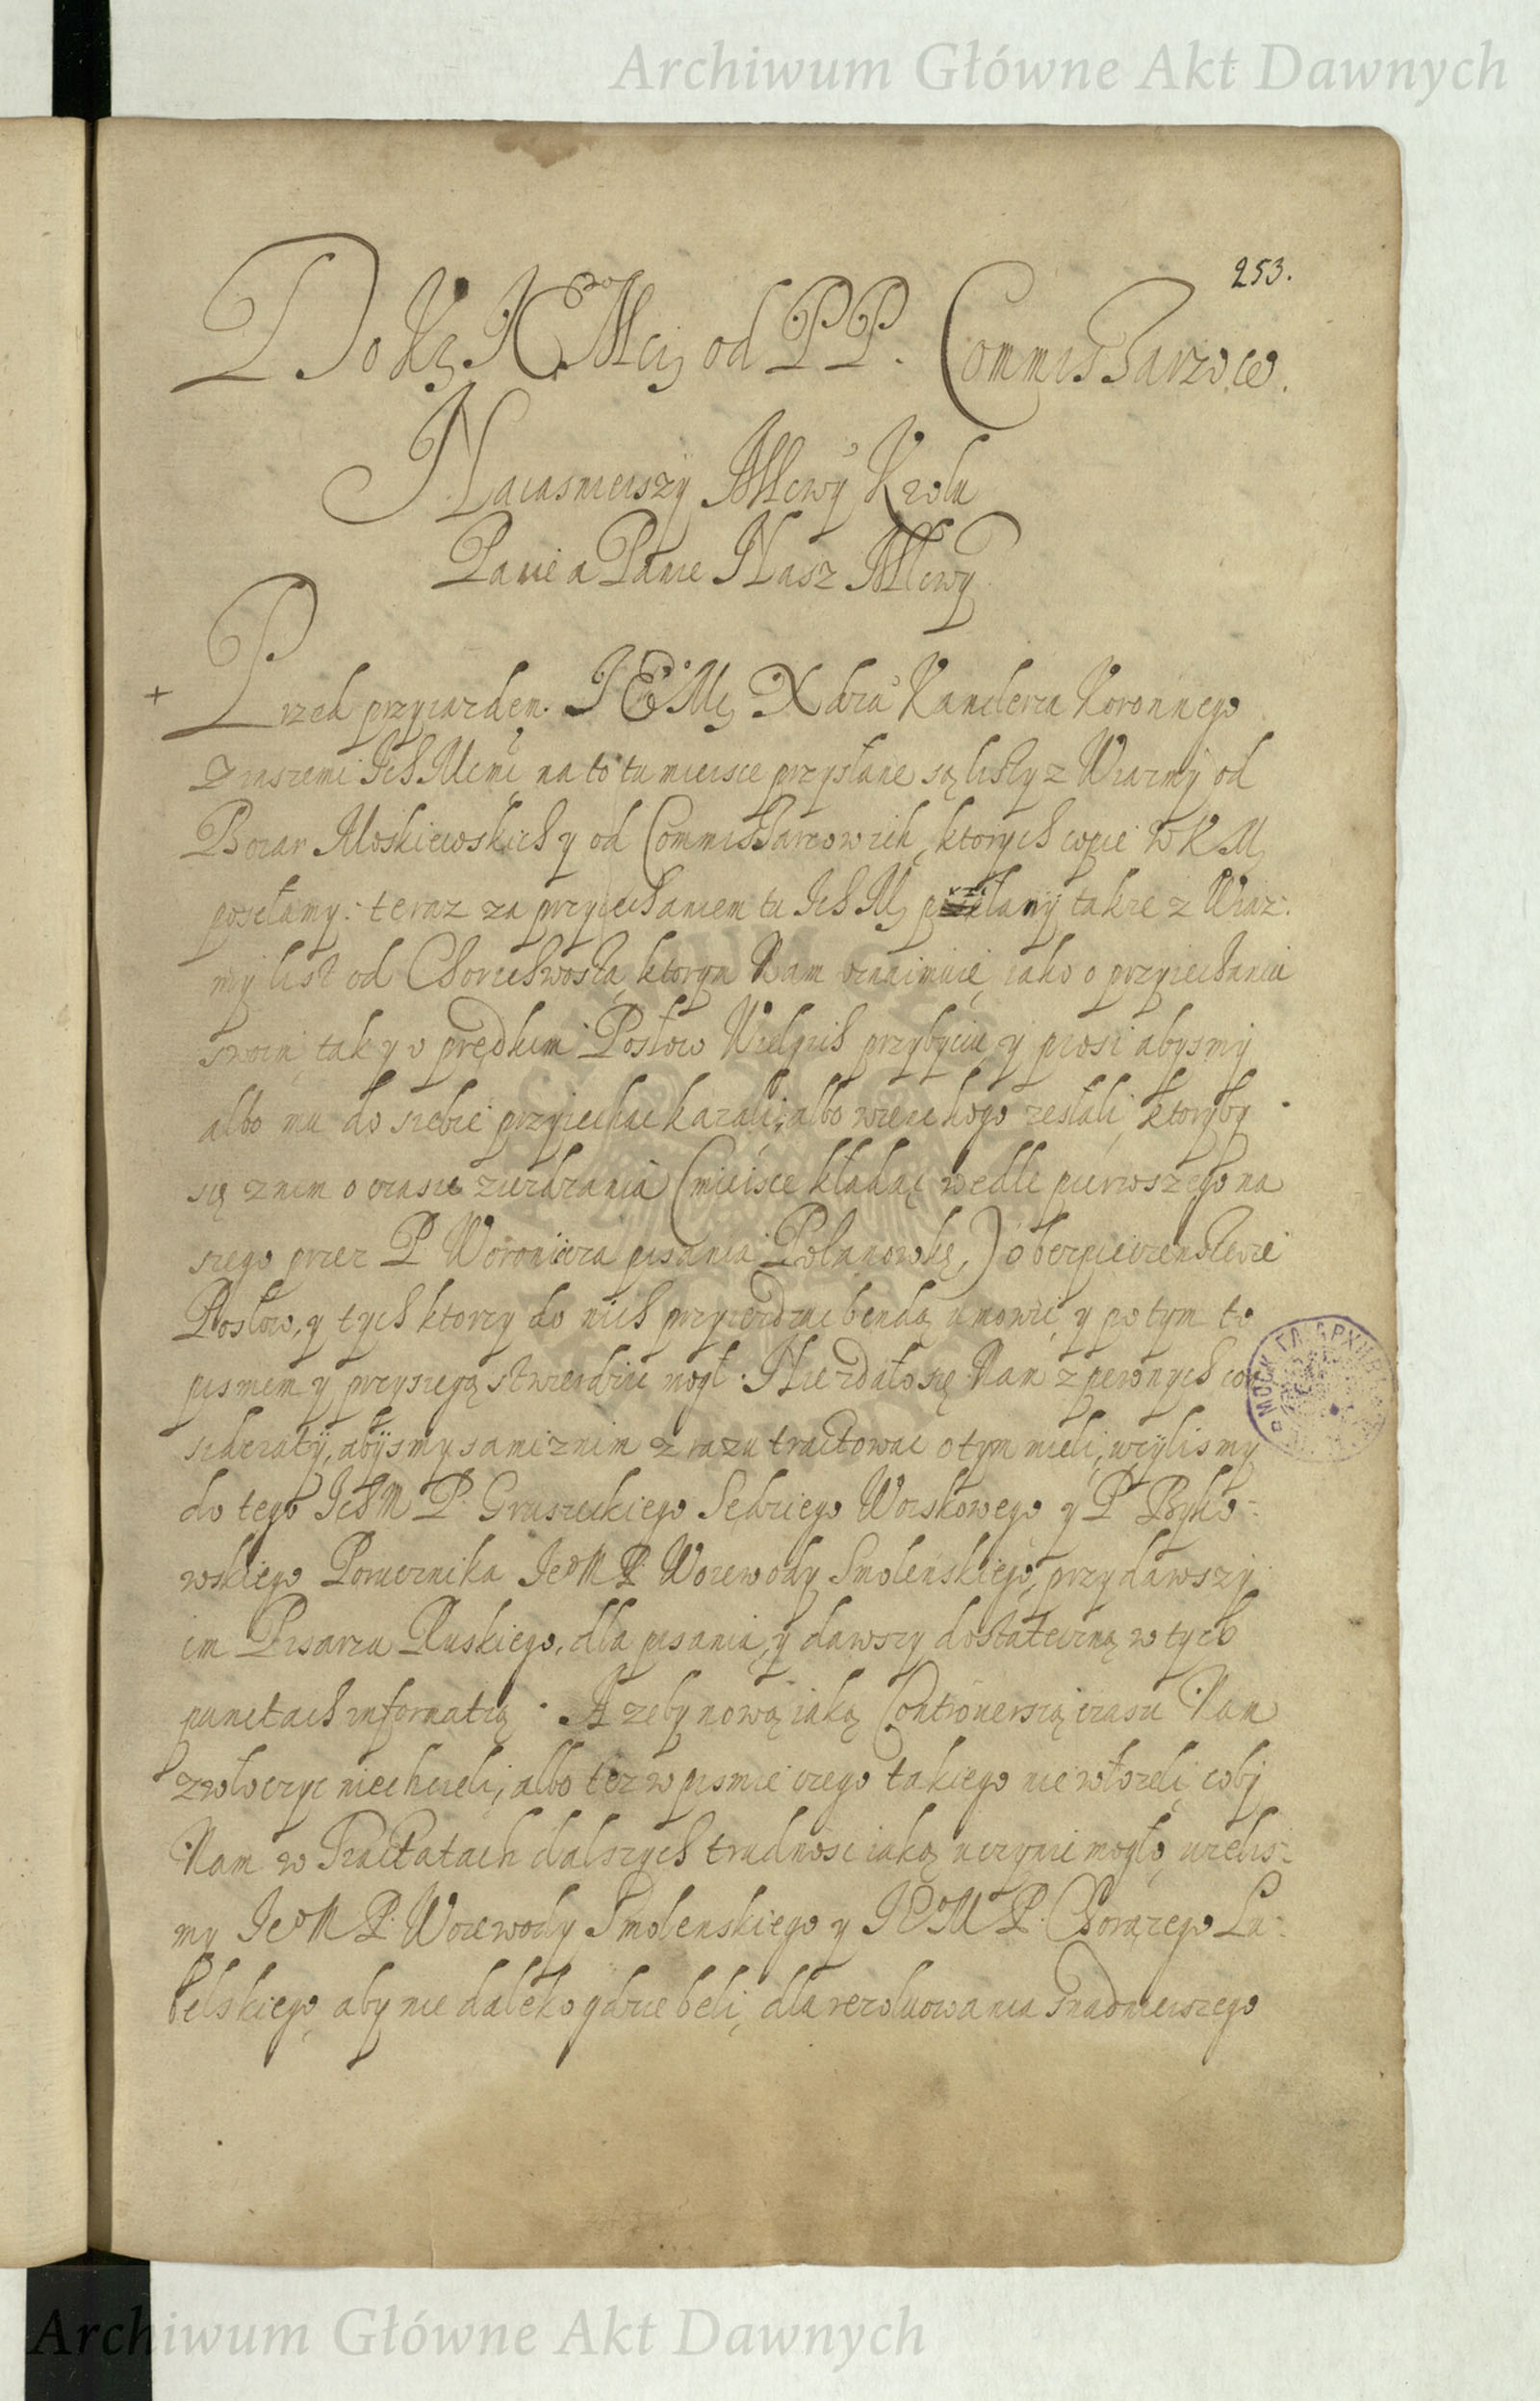 Archiwum Główne Akt Dawnych
253.
Do K I Mci od PP. Commissarzow.
Naiasnieiszy Mciwy Krolu
Panie a Panie Nasz Mciwy
+ Przed przyiazdem IE Mci Xdza Kanclerza Koronnego
z inszemi Ich Mcmi na to tu mieisce przysłane są listy z Wiazmy od
Boiar Moskiewskich y od Commissarzow ich, ktorych copie W K M
posełamy: teraz za przyiechaniem tu Ich M, przysłany takze z Wiaz:
my list od Choriechwosta, ktorym Nam oznaimuie, iako o przyiechaniu
swoim, tak y o prędkim Posłow Wielgich przybyciu y prosi abysmy
albo mu do siebie przyiechac kazali, albo wiec kogo zesłali, ktoryby
się znim o czasie ziezdzania (mieisce kładąc wedle pierwszego na
szego przez P Woronicza pisania Polanowkę,) o bezpieczenstwie
Posłow, y tych ktorzy do nich przyiezdzac bendą umowic, y potym to
pismem y przysięgą stwierdzic mogł. Niezdało się Nam z pewnych co
sideratij, abysmy sami znim zrazu tractowac o tym mieli, uzylismy
do tego Ich M P. Gruszeckiego Sedziego Woiskowego y P Byko-
wskiego Porucznika Ie° M P. Woiewody Smolenskiego, przydawszy
im Pisarza Ruskiego, dla pisania, y dawszy dostateczną w tych
punctach informatią. A zeby nową iaką Controuersią czasu Nam
zwłoczyc niechcieli, albo tez w pismie czego takiego nie włozeli, coby
Nam w Tractatach dalszych trudnosc iaką uczynic mogło, uzelis:
my Ie° M P. Woiewody Smolenskiego y IE° M P. Chorązego Lu:
belskiego, aby nie daleko gdzie beli, dla rezoluowania snadnieiszego
Archiwum Główne Akt Dawnych